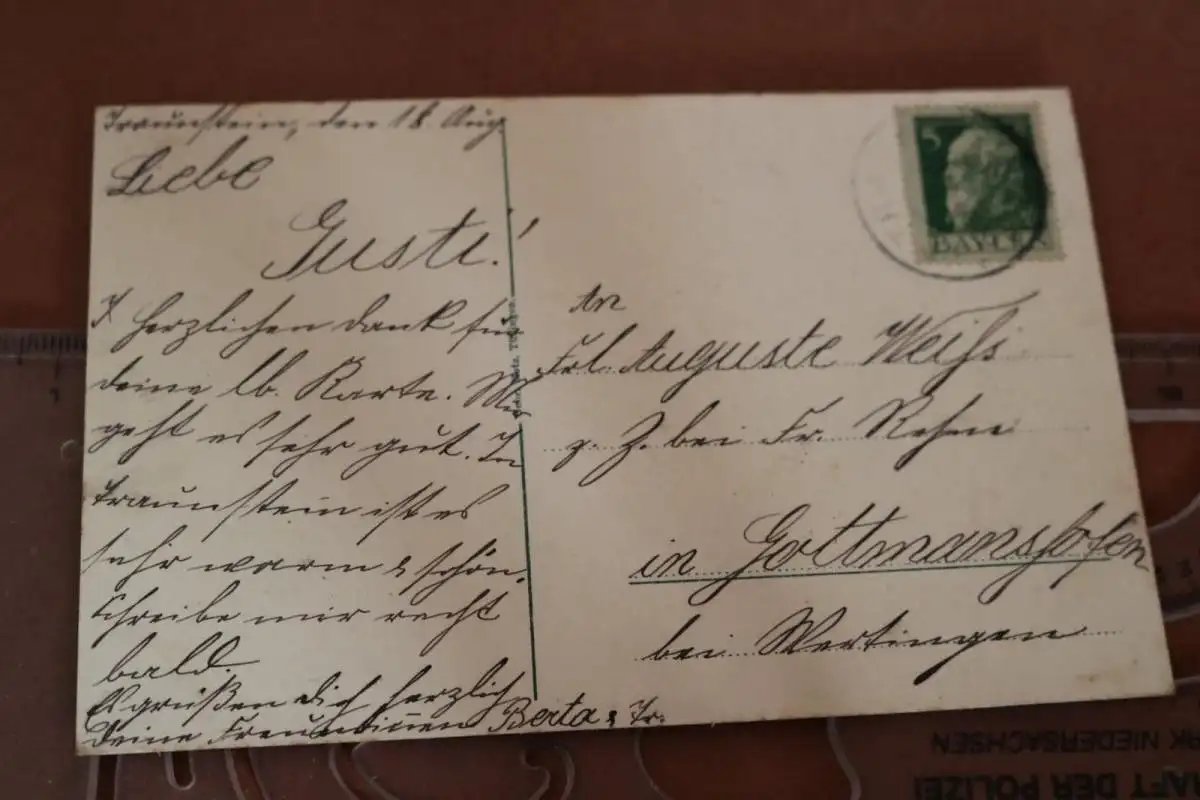 Traunstein, den 18. Aug
Liebe
Guste!
Herzlichen Dank für
deine lb. Karte. Mir
geht es sehr gut. In
Traunstein ist es
sehr warm & schön.
Schreibe mir recht
bald.
Es grüßen dich herzlich
deine Freundinnen Berta & Tr.
5
BAYERN
An
Frl. Auguste Weiß
z. Z. bei Fr. Rehm
in Gottmanshofen
bei Wertingen
RK NIEDERSACHSEN
AFT DER POLIZEI